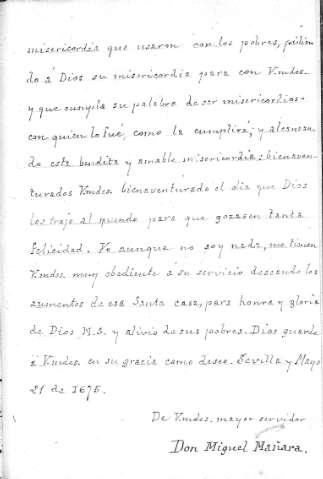 misericordia que usaron con los pobres, pidien
do á Dios su misericordia para con Vmdes.
y que cumpla su palabra de ser misericordioso
con quien lo fué, como la cumplirá; y alcanza
do esta bendita y amable misericordia: bienaven
turados Vmdes. bienaventurado el dia que Dios
les trajo al mundo para que gozasen tanta
felicidad. Yo aunque no soy nada, me tienen
Vmdes. muy obediente á su servicio deseando los
aumentos de esa Santa casa, para honra y gloria
de Dios N.S. y alivio de sus pobres. Dios guarde
á Vmdes. en su gracia como deseo. Sevilla y Mayo
21 de 1675.
De Vmdes. mayor servidor
Don Miguel Mañara.